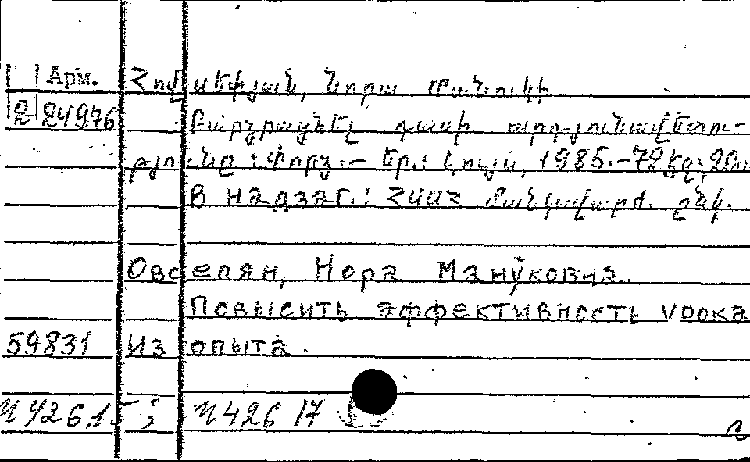 Арм. Հովսեփյան, Նորա Մանուկի
2 24976 Բարձրացնել դասի արդյունավետու-
թյունը: Փորձ.— Եր.: Լույս, 1985.—72 էջ; 20սմ
В надзаг.: ՀՍՍՀ մանկավարժ. ընկ.
Овсепян, Нора Мануковна.
Повысить эффективность урока
59831 Из опыта.
Ч426.15; Ч426 17